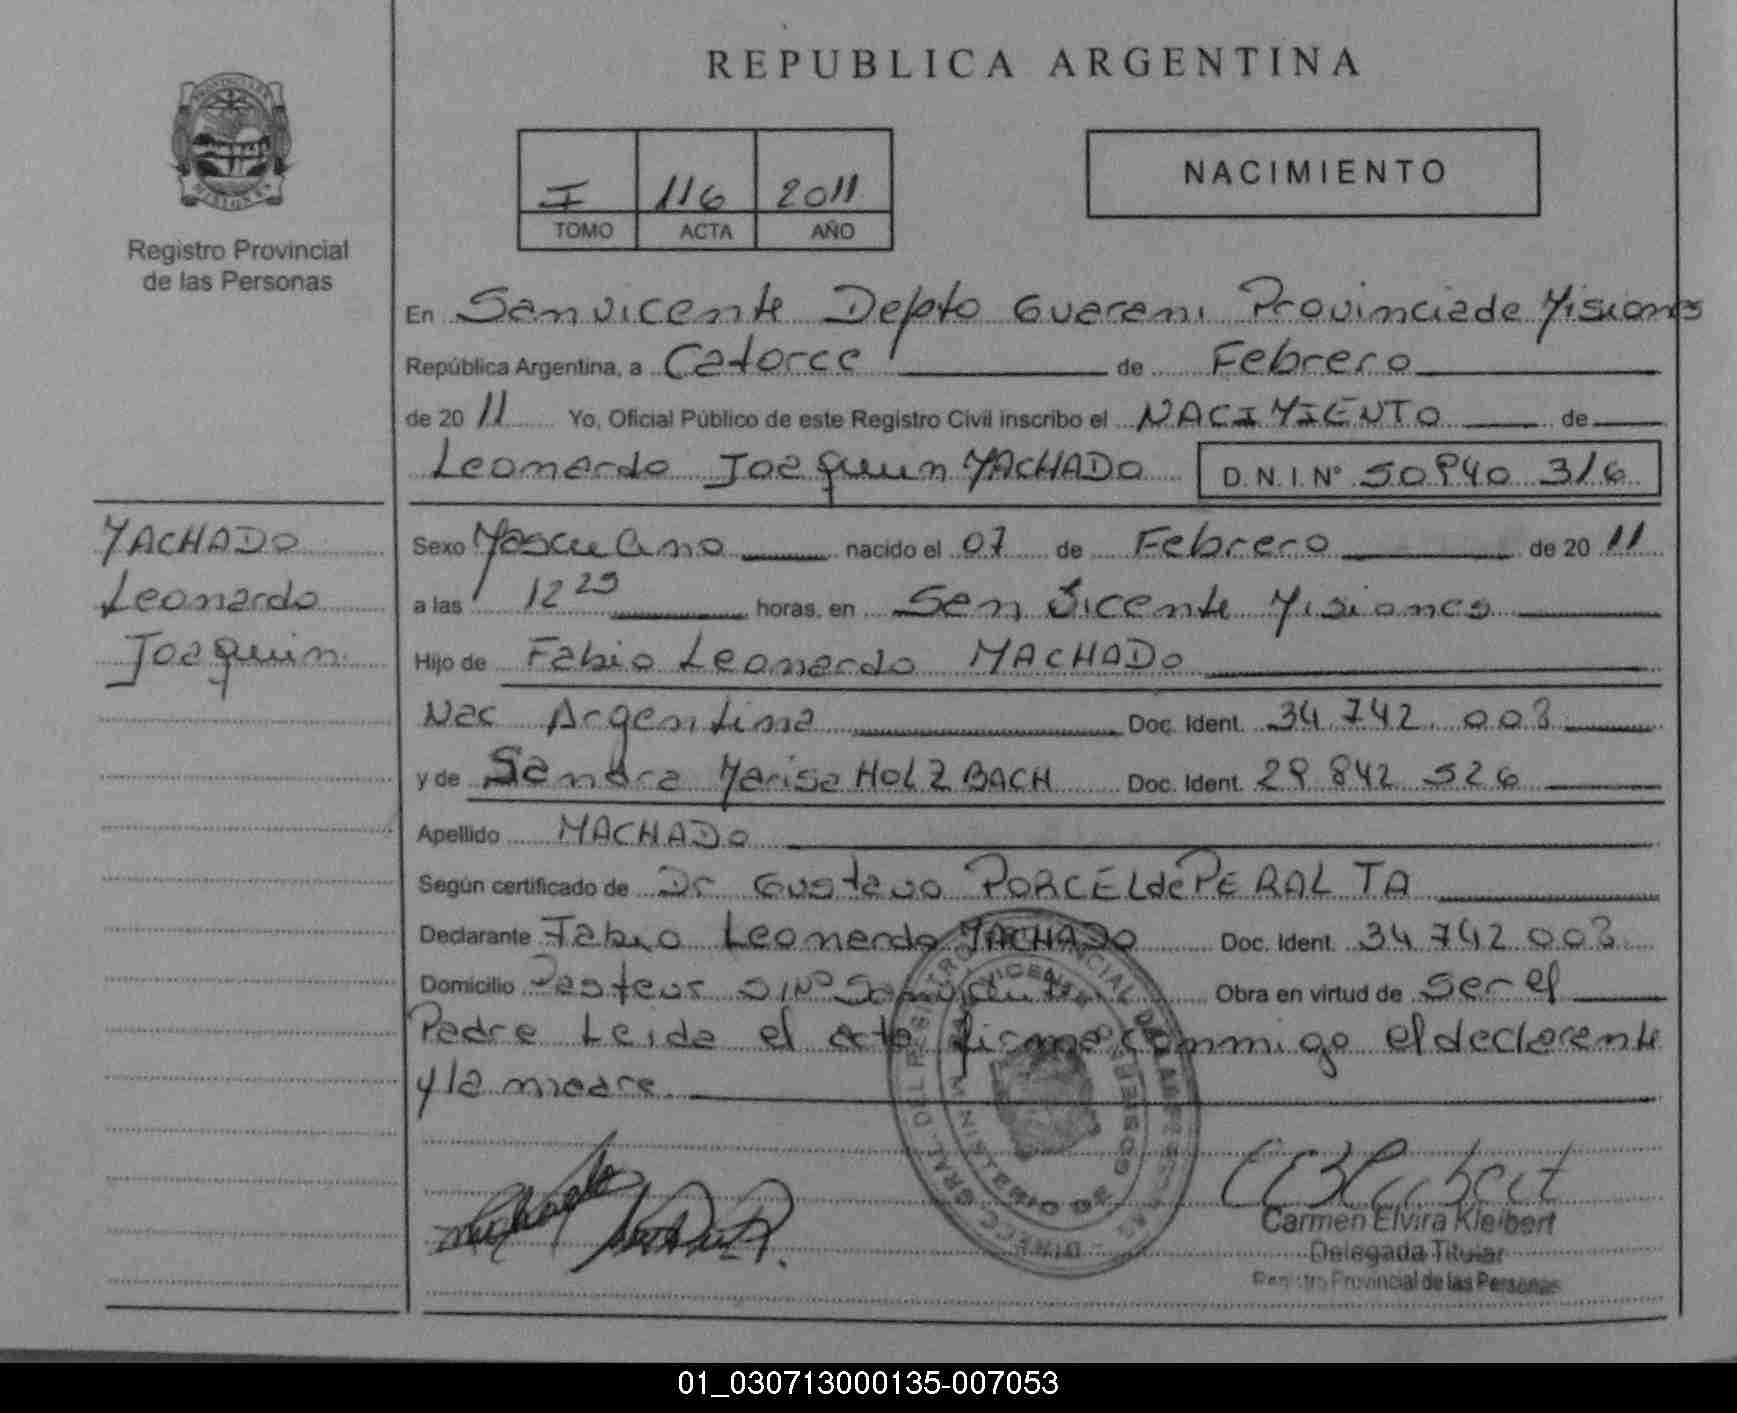 REPUBLICA ARGENTINA
PROVINCIA DE MISIONES
Registro Provincial
de las Personas
I 116 2011
TOMO ACTA AÑO
NACIMIENTO
En San vicente Depto Guarani Provincia de Misiones
República Argentina, a Catorce de Febrero
de 2011 Yo, Oficial Público de este Registro Civil inscribo el NACIMIENTO de
Leonardo Joaquin MACHADO D.N.I. Nº 50940 316
MACHADO
Leonardo
Joaquin
Sexo Masculino nacido el 07 de Febrero de 2011
a las 12 25 horas, en San Vicente Misiones
Hijo de Fabio Leonardo MACHADO
Nac Argentina Doc. Ident. 34 742 008
y de Sandra Marisa HOLZBACH Doc. Ident. 29 842 526
Apellido MACHADO
Según certificado de Dr Gustavo PORCEL de PERALTA
Declarante Fabio Leonardo MACHADO Doc. Ident. 34 742 008
Domicilio Pasteur S/Nº San vicente Obra en virtud de ser el
Padre Leida el acta firma conmigo el declarante
y la madre.
Carmen Elvira Kleibert
Delegada Titular
Registro Provincial de las Personas
01_030713000135-007053